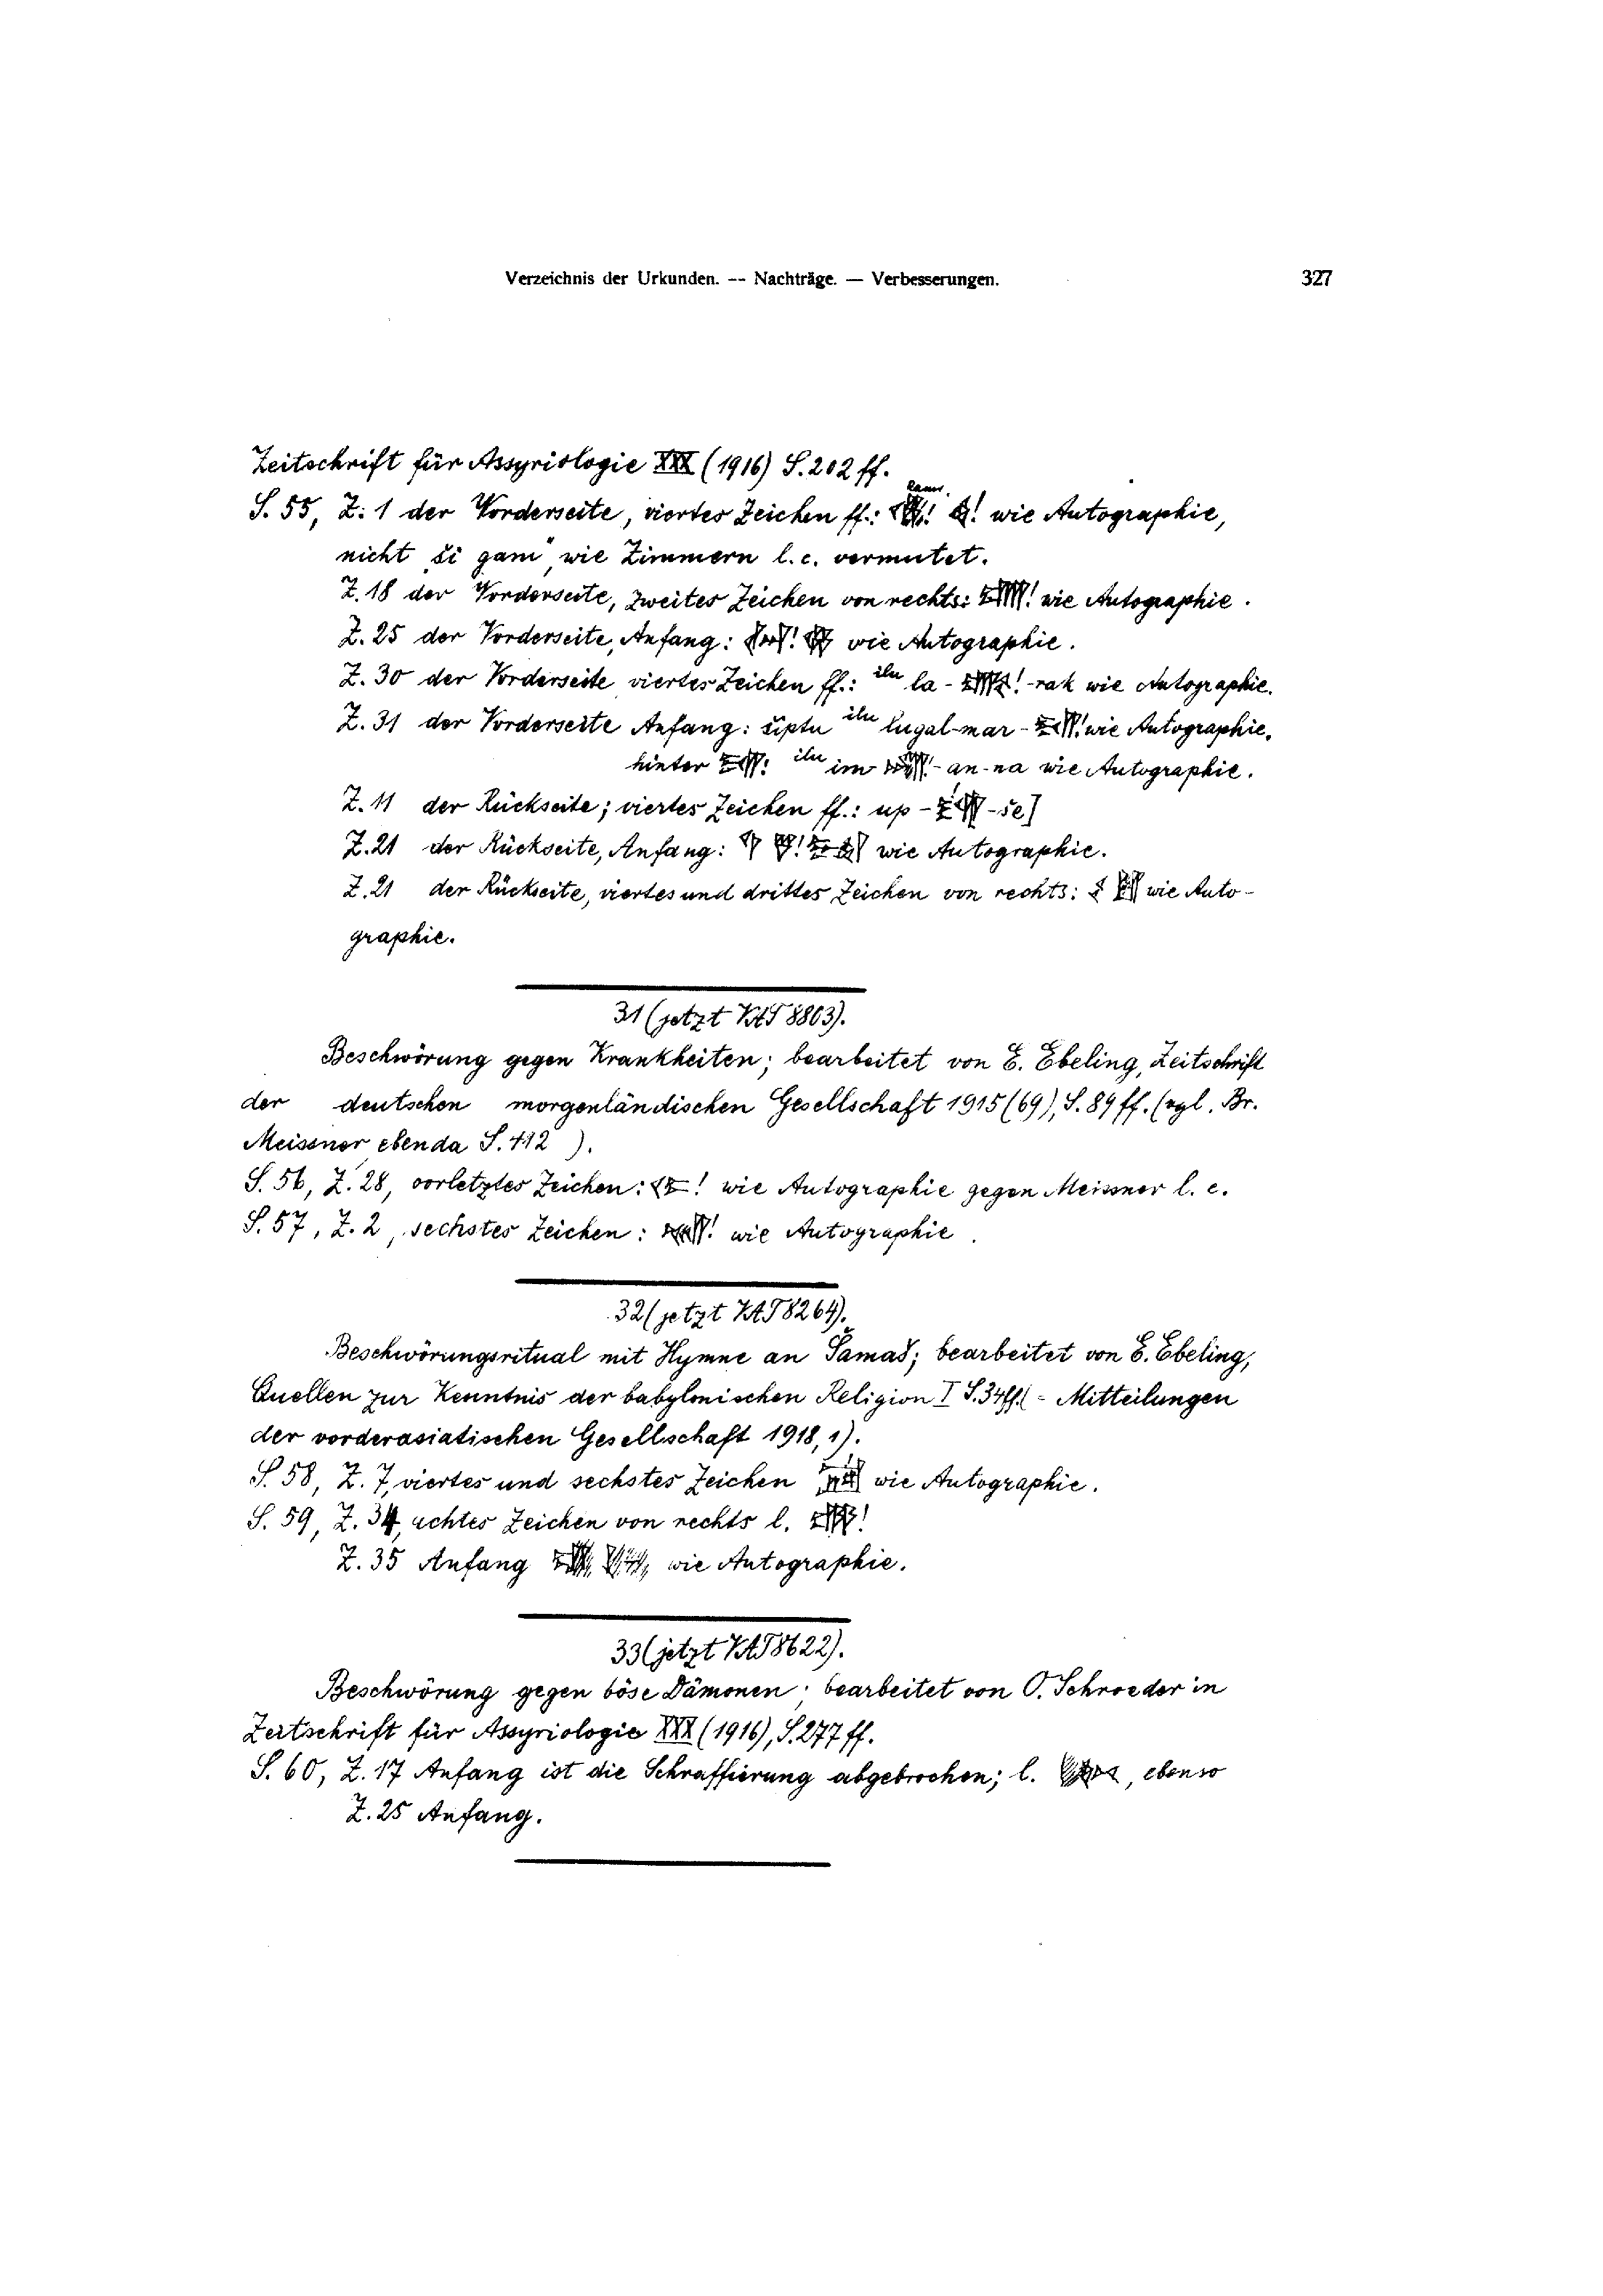 Verzeichnis der Urkunden. -- Nachträge. — Verbesserungen. 327
Zeitschrift für Assyriologie XXX (1916) S. 202 ff.
S. 55, Z. 1 der Vorderseite, viertes Zeichen ff.: ! ! wie Autographie,
nicht „ši gam“ wie Zimmern l. c. vermutet.
Z. 18 der Vorderseite, zweites Zeichen von rechts: ! wie Autographie.
Z. 25 der Vorderseite, Anfang: ! wie Autographie.
Z. 30 der Vorderseite viertes Zeichen ff.: ilu la- !-rak wie Autographie.
Z. 31 der Vorderseite Anfang: šiptu ilu lugal-mar- ! wie Autographie.
hinter : ilu im !-an-na wie Autographie.
Z. 11 der Rückseite; viertes Zeichen ff.: up- -se]
Z. 21 der Rückseite, Anfang: ! wie Autographie.
Z. 21 der Rückseite, viertes und drittes Zeichen von rechts: wie Auto-
graphie.
31 (jetzt VAT 8803).
Beschwörung gegen Krankheiten; bearbeitet von E. Ebeling, Zeitschrift
der deutschen morgenländischen Gesellschaft 1915 (69), S. 89 ff. (vgl. Br.
Meissner ebenda S. 412 ).
S. 56, Z. 28, vorletztes Zeichen: ! wie Autographie gegen Meissner l. c.
S. 57, Z. 2, sechstes Zeichen: ! wie Autographie.
32 (jetzt VAT 8264).
Beschwörungsritual mit Hymne an Šamaš; bearbeitet von E. Ebeling,
Quellen zur Kenntnis der babylonischen Religion I S. 34ff. (= Mitteilungen
der vorderasiatischen Gesellschaft 1918, 1).
S. 58, Z. 7, viertes und sechstes Zeichen wie Autographie.
S. 59, Z. 34, achtes Zeichen von rechts l. !
Z. 35 Anfang wie Autographie.
33 (jetzt VAT 8622).
Beschwörung gegen böse Dämonen; bearbeitet von O. Schroeder in
Zeitschrift für Assyriologie XXX (1916), S. 277 ff.
S. 60, Z. 17 Anfang ist die Schraffierung abgebrochen; l. , ebenso
Z. 25 Anfang.